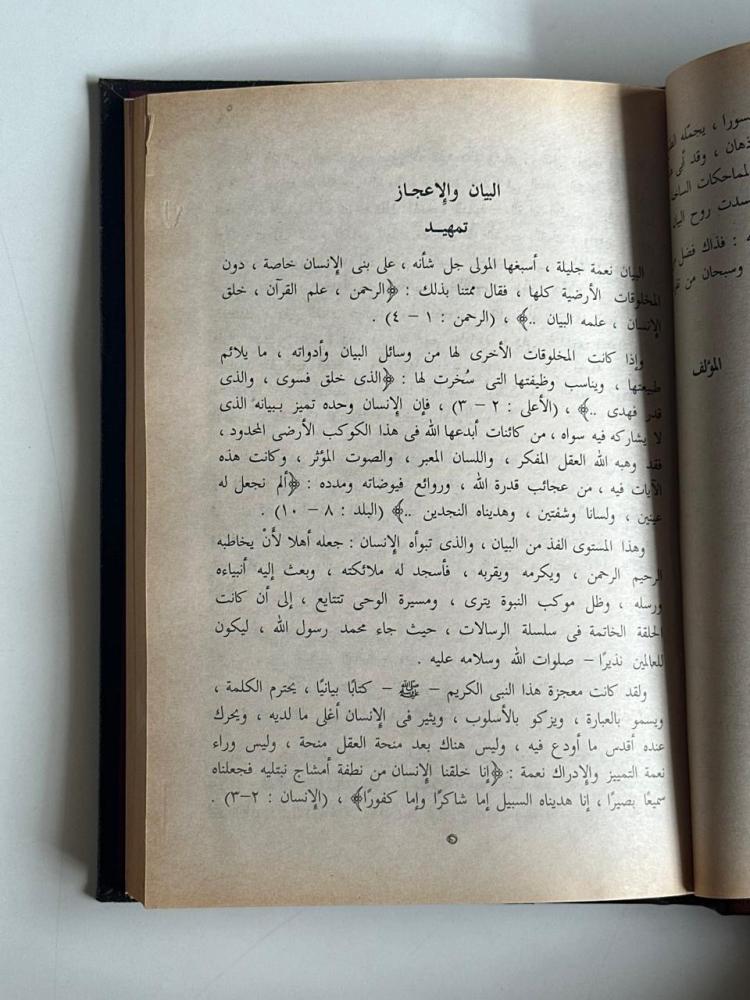 البيان والإعجاز
تمهيـد
البيان نعمة جليلة ، أسبغها المولى جل شأنه ، على بنى الإنسان خاصة ، دون
المخلوقات الأرضية كلها ، فقال ممتنا بذلك : ﴿الرحمن ، علم القرآن ، خلق
الإنسان ، علمه البيان ..﴾ ، (الرحمن : ١ – ٤) .
وإذا كانت المخلوقات الأخرى لها من وسائل البيان وأدواته ، ما يلائم
طبيعتها ، ويناسب وظيفتها التى سُخرت لها : ﴿الذى خلق فسوى ، والذى
قدر فهدى ..﴾ ، (الأعلى : ٢ – ٣) ، فإن الإنسان وحده تميز ببيانه الذى
لا يشاركه فيه سواه ، من كائنات أبدعها الله فى هذا الكوكب الأرضى المحدود ،
فقد وهبه الله العقل المفكر ، واللسان المعبر ، والصوت المؤثر ، وكانت هذه
الآيات فيه ، من عجائب قدرة الله ، وروائع فيوضاته ومدده : ﴿ألم نجعل له
عينين ، ولسانا وشفتين ، وهديناه النجدين ..﴾ (البلد : ٨ – ١٠) .
وهذا المستوى الفذ من البيان ، والذى تبوأه الإنسان : جعله أهلا لأنْ يخاطبه
الرحيم الرحمن ، ويكرمه ويقربه ، فأسجد له ملائكته ، وبعث إليه أنبياءه
ورسله ، وظل موكب النبوة يترى ، ومسيرة الوحى تتتابع ، إلى أن كانت
الحلقة الخاتمة فى سلسلة الرسالات ، حيث جاء محمد رسول الله ، ليكون
للعالمين نذيرًا – صلوات الله وسلامه عليه .
ولقد كانت معجزة هذا النبى الكريم – ﷺ – كتابًا بيانيًا ، يحترم الكلمة ،
ويسمو بالعبارة ، ويزكو بالأسلوب ، ويثير فى الإنسان أغلى ما لديه ، ويحرك
عنده أقدس ما أودع فيه ، وليس هناك بعد منحة العقل منحة ، وليس وراء
نعمة التمييز والإدراك نعمة : ﴿إنا خلقنا الإنسان من نطفة أمشاج نبتليه فجعلناه
سميعًا بصيرًا ، إنا هديناه السبيل إما شاكرًا وإما كفورًا﴾ ، (الإنسان : ٢–٣) .
٥
يجمله
، وقد
المماحكات
روح
: فذاك فضل
وسبحان من
المؤلف